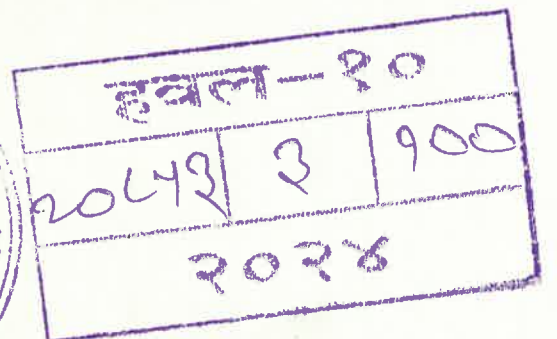 हवल-१०
२०८५३ ३ १००
२०२४